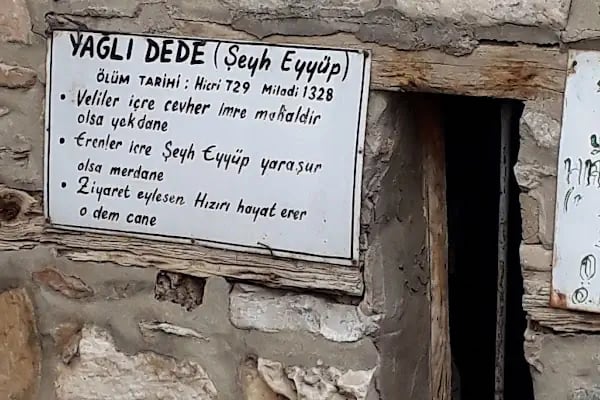 YAĞLI DEDE (Şeyh Eyyüp)
ÖLÜM TARİHİ : Hicri 729 Miladi 1328
• Veliler içre cevher imre mahaldir
olsa yekdane
• Erenler icre Şeyh Eyyüp yaraşur
olsa merdane
• Ziyaret eylesen Hızırı hayat erer
o dem cane